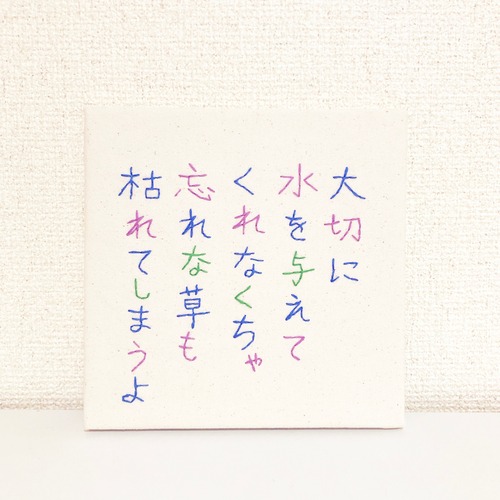 大切に
水を与えて
くれなくちゃ
忘れな草も
枯れてしまうよ